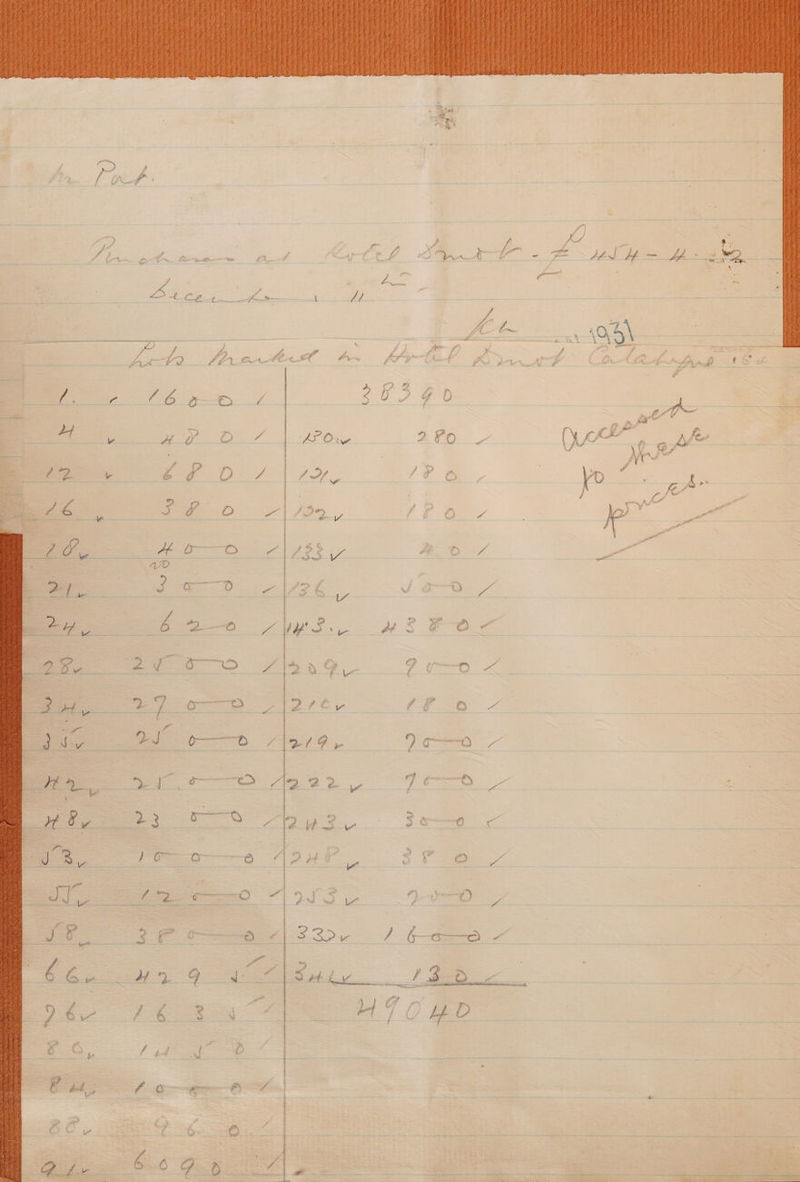 In Part.
Purchases at Hotel Druot - £ 454 - 4 -
December 11th -
1931
Lots Marked in Hotel Druot Catalogue
1. 1600 / 38390
4 480 / 130 280 /
12 680 / 131 180 /
16 380 / 132 180 /
18 400 / 133 40 /
21 300 / 136 500 /
24 620 / 143 4380 /
28 2500 / 209 900 /
34 2700 / 210 180 /
35 2500 / 219 700 /
42 2500 / 222 700 /
48 2300 / 243 300 /
53 1000 / 248 380 /
55 1200 / 253 200 /
58 3800 / 332 1600 /
66 4295 / 341 130 /
76 1635 / 49040
80 1450 /
84 1000 /
88 960 /
91 6090 /
Accessed
to these
prices.